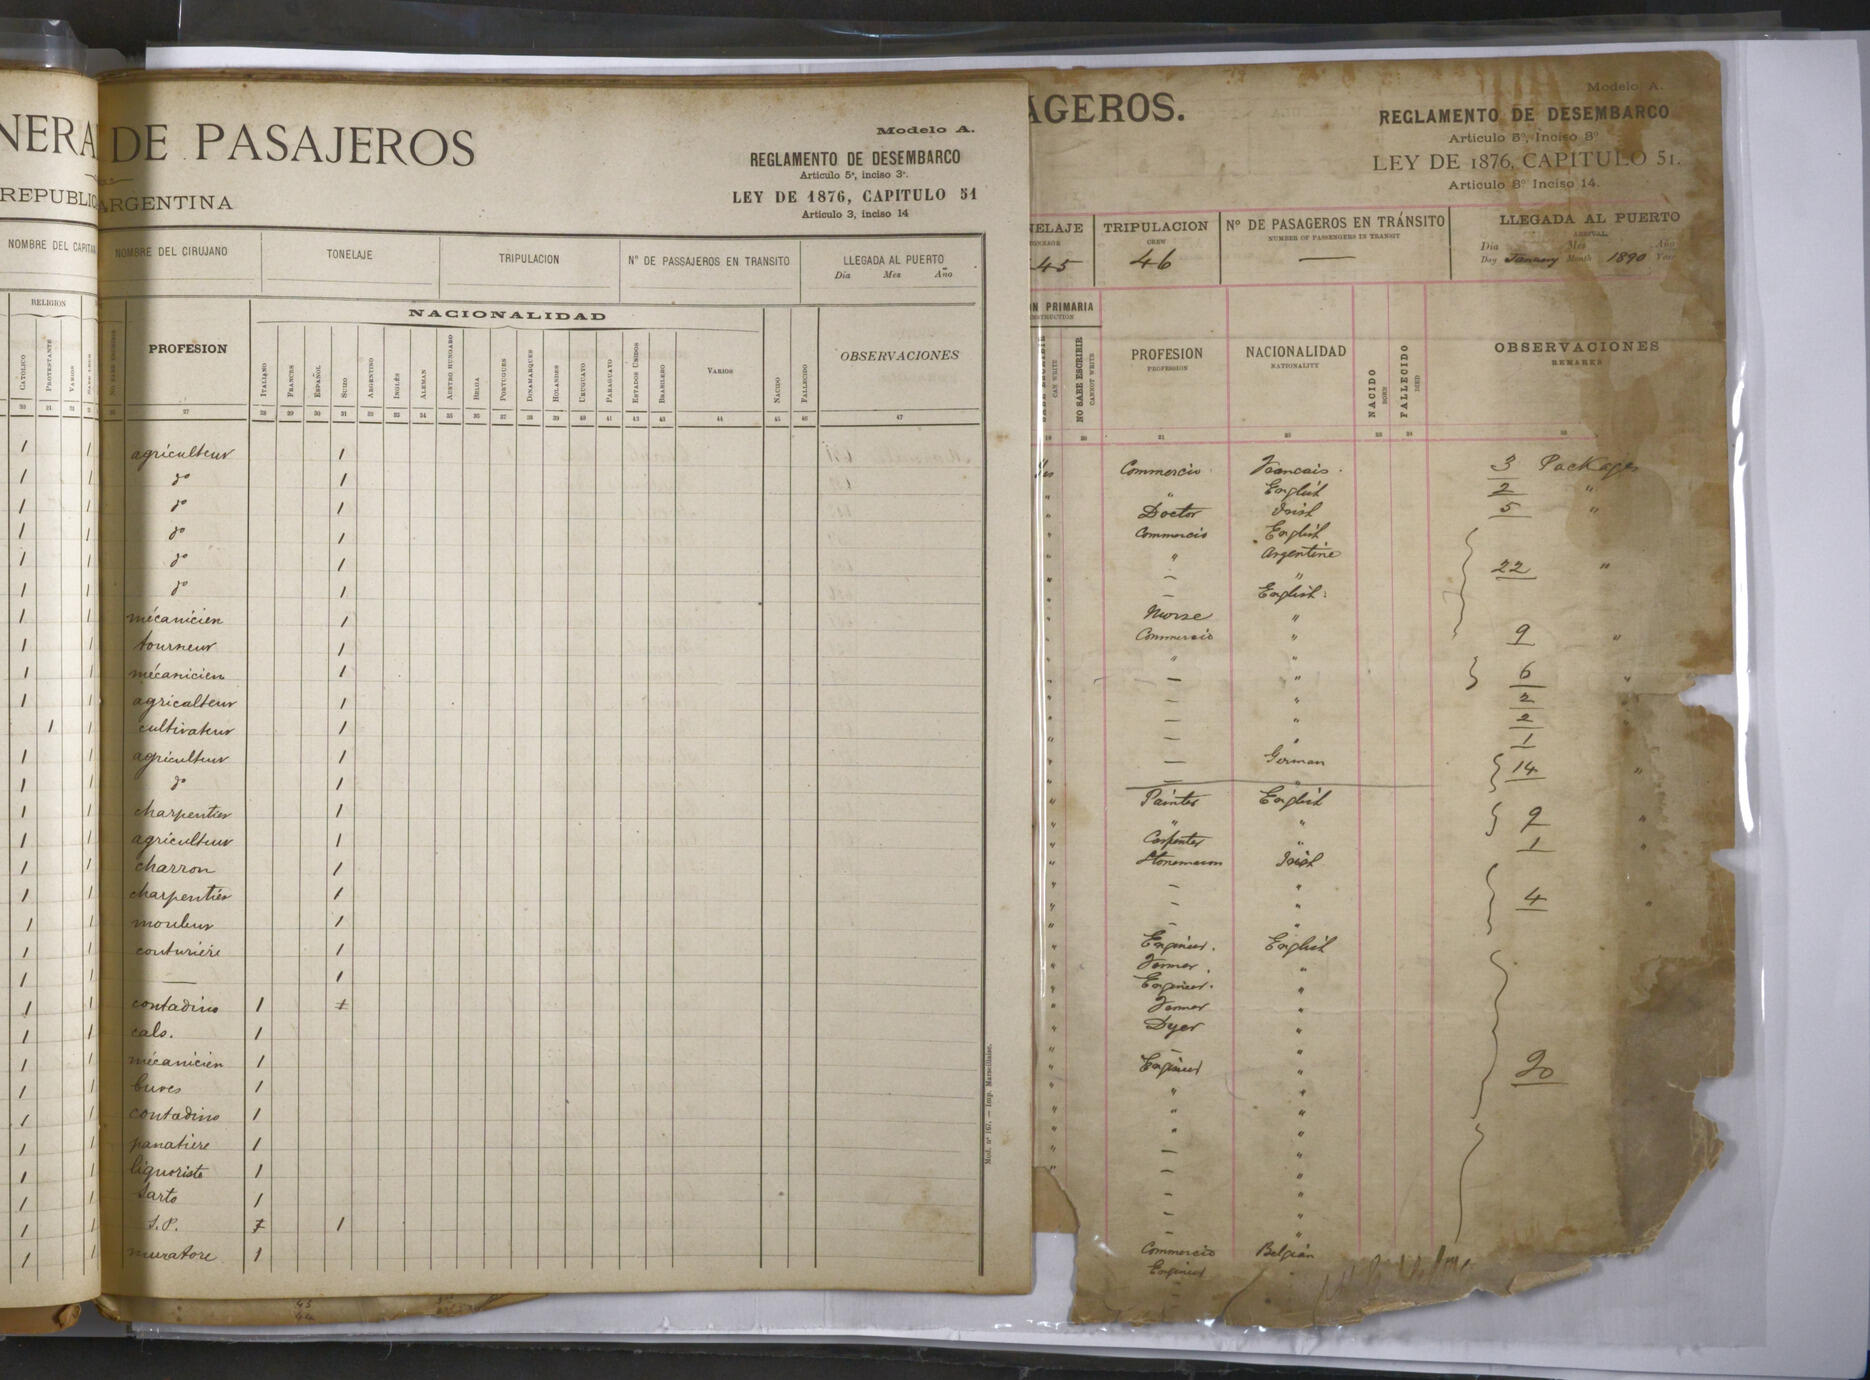 NERA DE PASAJEROS
REPUBLIC ARGENTINA
Modelo A.
REGLAMENTO DE DESEMBARCO
Articulo 5º, inciso 3º.
LEY DE 1876, CAPITULO 51
Articulo 3, inciso 14
NOMBRE DEL CAPITA NOMBRE DEL CIRUJANO TONELAJE TRIPULACION Nº DE PASSAJEROS EN TRANSITO LLEGADA AL PUERTO
Dia Mes Año
RELIGION
NACIONALIDAD
CATÓLICO PROTESTANTE VARIOS PROFESION ITALIANO FRANCES ESPAÑOL SUIZO ARGENTINO INGLÉS ALEMAN AUSTRO HUNGARO BELGA PORTUGUES DINAMARQUES HOLANDES URUGUAYO PARAGUAYO ESTADOS UNIDOS BRASILERO VARIOS NACIDO FALLECIDO OBSERVACIONES
20 21 22 27 28 29 30 31 32 33 34 35 36 37 38 39 40 41 42 43 44 45 46 47
1 1 agriculteur 1
1 1 dº 1
1 1 dº 1
1 1 dº 1
1 1 dº 1
1 1 dº 1
1 1 mécanicien 1
1 1 tourneur 1
1 1 mécanicien 1
1 1 agriculteur 1
1 1 cultivateur 1
1 1 agriculteur 1
1 1 dº 1
1 1 charpentier 1
1 1 agriculteur 1
1 1 charron 1
1 1 charpentier 1
1 1 mouleur 1
1 1 couturière 1
1 1 — 1
1 1 contadino 1 1
1 1 cals. 1
1 1 mécanicien 1
1 1 1
1 1 contadino 1
1 1 panatiere 1
1 1 liquoriste 1
1 1 Sarto 1
1 1 S.P. 1 1
1 1 muratore 1
Mod. nº 167. — Imp. Marseillaise.
AGEROS.
Modelo A.
REGLAMENTO DE DESEMBARCO
Articulo 5º, Inciso 3º
LEY DE 1876, CAPITULO 51.
Articulo 3º Inciso 14.
NELAJE TRIPULACION Nº DE PASAGEROS EN TRÁNSITO LLEGADA AL PUERTO
TONNAGE CREW NUMBER OF PASSENGERS IN TRANSIT ARRIVAL
Dia Mes Año
45 46 — Day January Month 1890 Year
ON PRIMARIA
NSTRUCTION
SABE ESCRIBIR CAN WRITE NO SABE ESCRIBIR CANNOT WRITE PROFESION PROFESSION NACIONALIDAD NATIONALITY NACIDO BORN FALLECIDO DIED OBSERVACIONES REMARKS
19 20 21 22 23 24 25
Yes Commercio Francais. 3 Packages
" " English 2 "
" Doctor Irish 5 "
" Commercio English
" " Argentine
" — " 22 "
" — English
" Nurse "
" Commercio " 9 "
" " "
" — " 6 "
" — " 2 "
" — " 2 "
" — " 1
" — German 14 "
" — "
" Painter English
" " " 9 "
" Carpenter " 1 "
" Stonemason Irish
" — "
" — " 4 "
" —
" Engineer. English
" Farmer. "
" Engineer. "
" Farmer "
" Dyer "
" — "
" Engineer " 20
" " "
" " "
" " "
— "
— "
— "
—
— "
Commercio Belgian
Engineer "
45
44